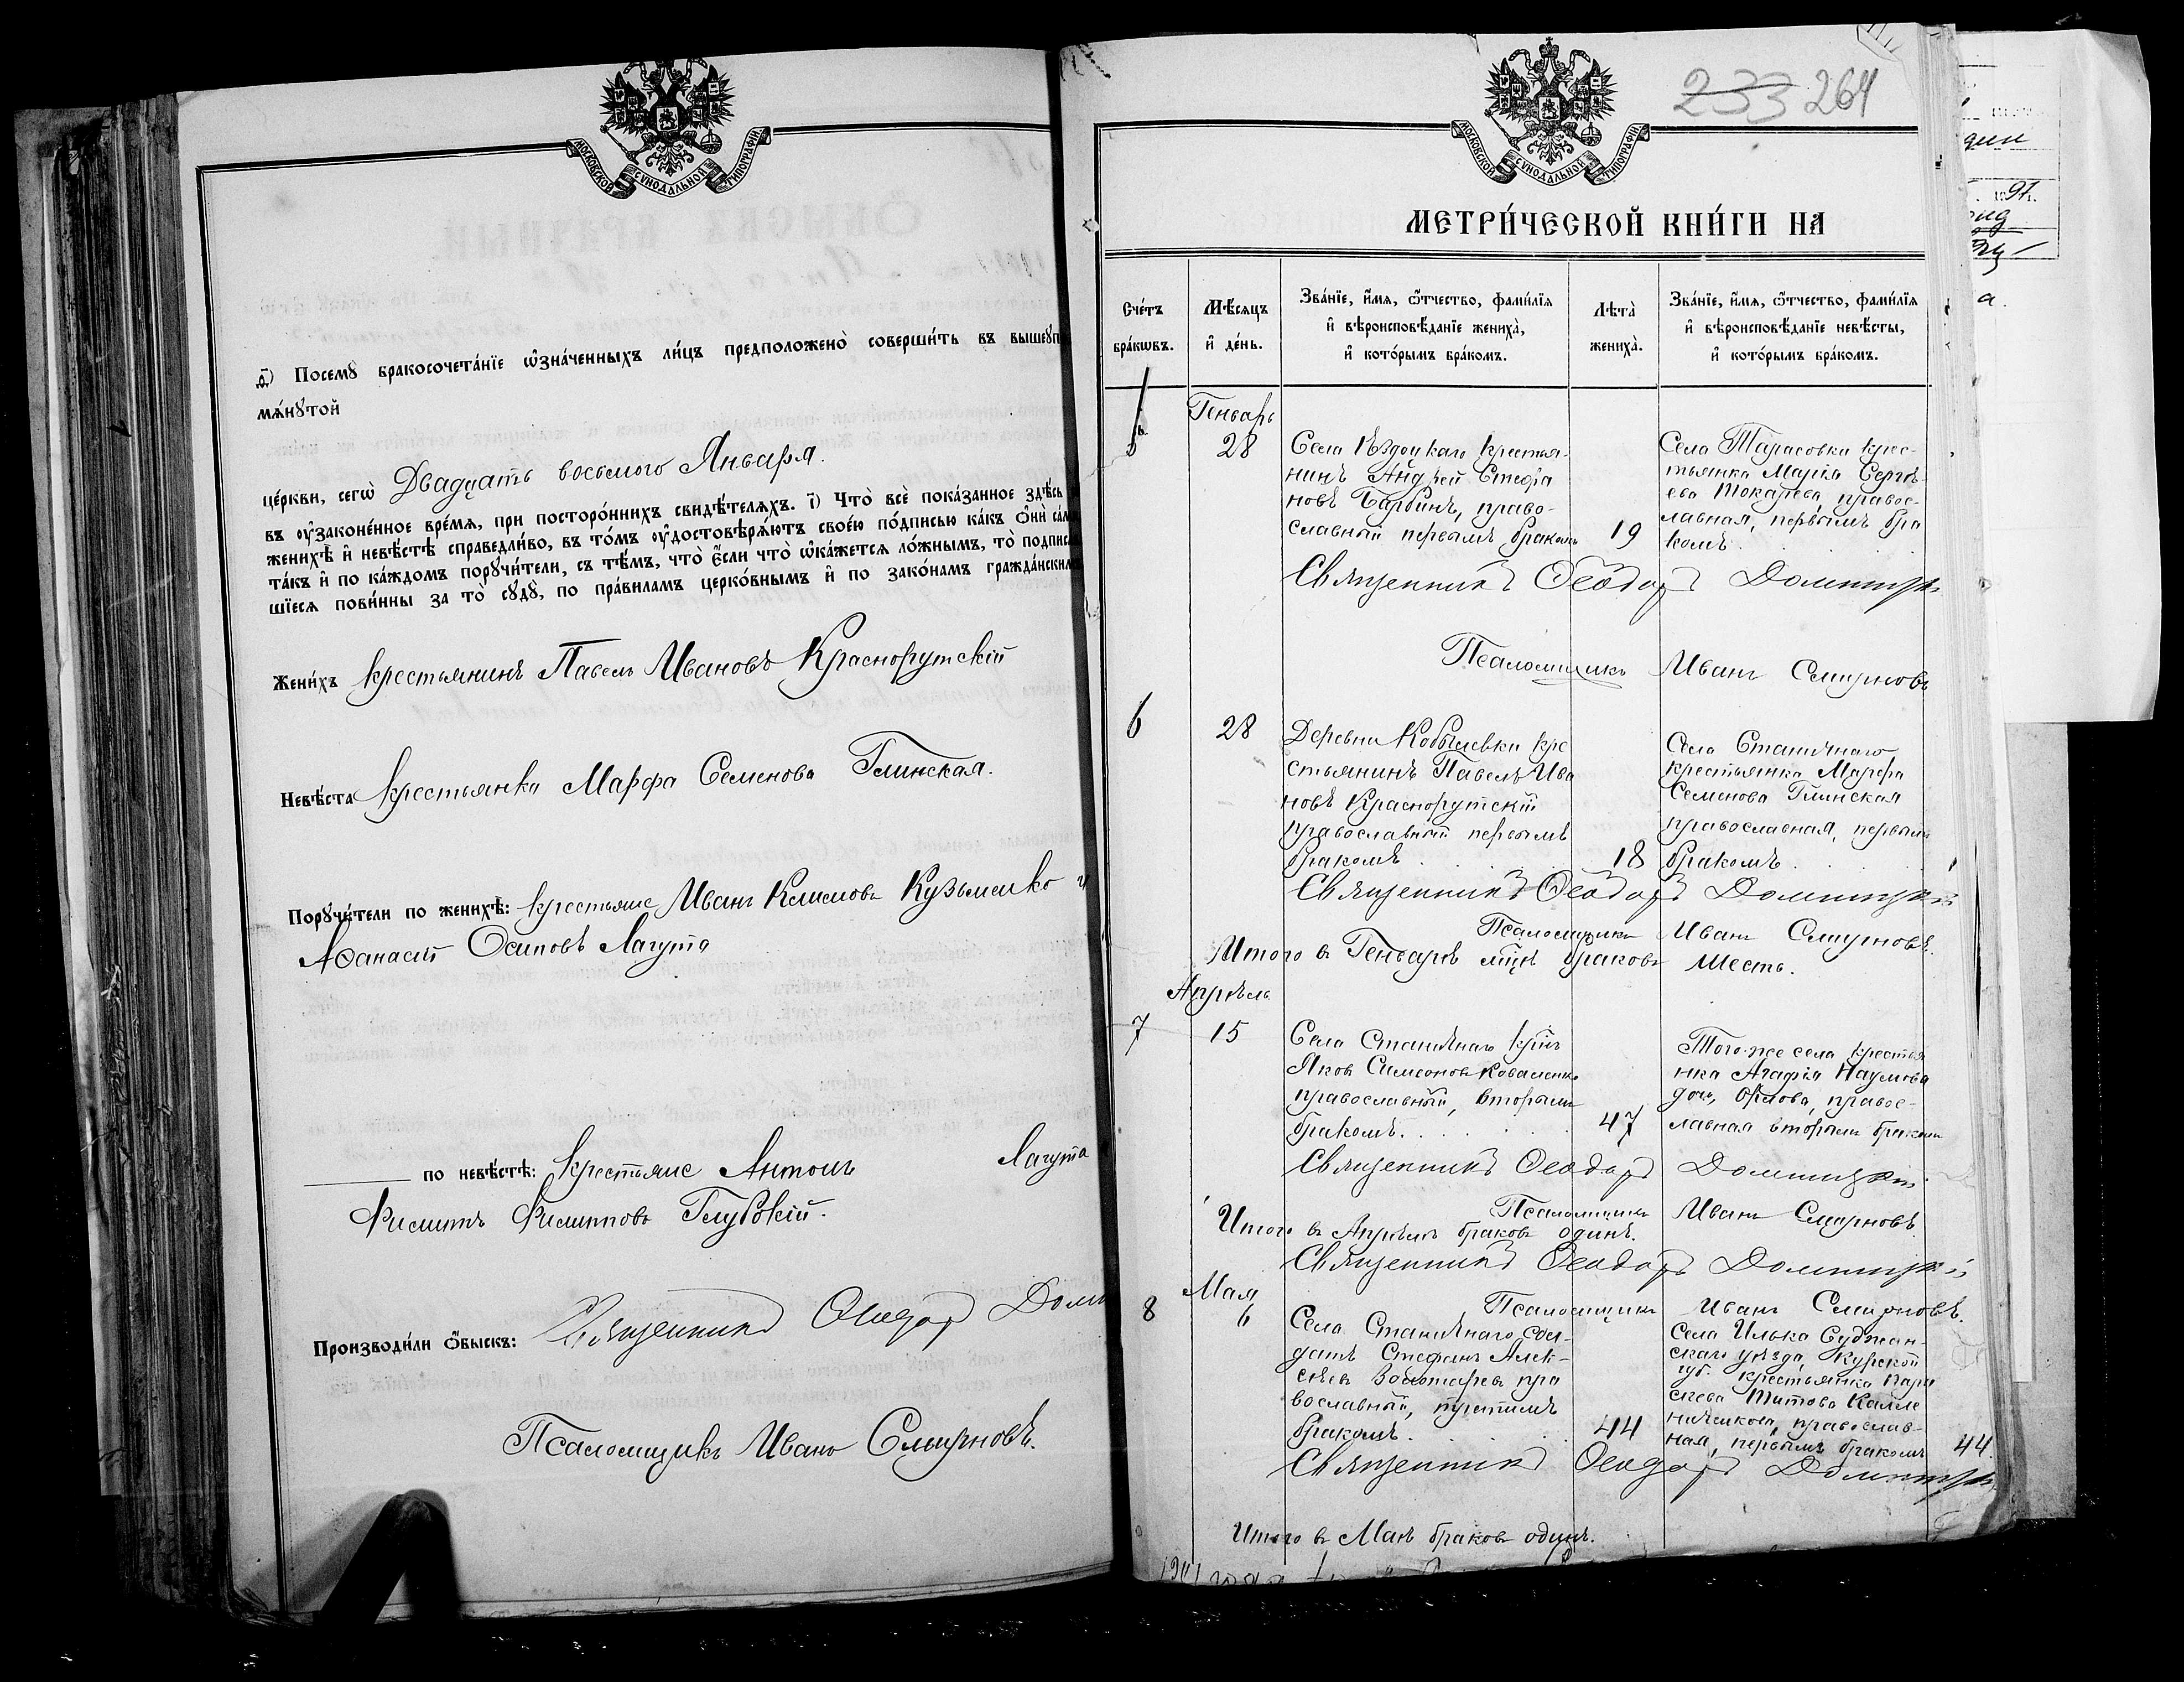 МОСКОВСКОЙ СѴНОДАЛЬНОЙ ТИПОГРАФІИ
Посемꙋ̀ бракосочета́нїе ѡ҆зна́ченныхъ ли́цъ предположено̀ соверши́ть въ вышеꙋп
мѧ́нꙋтой
це́ркви, сегѡ̀ Двадцать восьмого Января.
въ ᲂу҆законе́нное вре́мѧ, при посторо́ннихъ свидѣ́телѧхъ. і҃) Что̀ всѐ пока́занное здѣ́сь
женихѣ̀ и҆ невѣ́стѣ справедли́во, въ то́мъ ᲂу҆достовѣрѧ́ютъ свое́ю по́дписью ка́къ ѻ҆нѝ са́м
та́къ и҆ по ка́ждомъ порꙋчи́тели, съ тѣ́мъ, что̀ є҆́сли что̀ ѡ҆ка́жетсѧ ло́жнымъ, то̀ подпис
шїесѧ пови́нны за то̀ сꙋдꙋ̀, по пра́виламъ церко́внымъ и҆ по зако́намъ гражда́нским
Жени́хъ крестьянинъ Павелъ Ивановъ Краснорутскій
Невѣ́ста крестьянка Марфа Семенова Глинская.
Порꙋчи́тели по женихѣ̀: крестьяне Иванъ Климовъ Кузьменко и
Аѳанасій Осиповъ Лагута
по невѣ́стѣ: крестьяне Антонъ Лагута
Филиппъ Филипповъ Глубокій.
Производи́ли ѻ҆́быскъ: Священникъ Ѳеодоръ Доми
Псаломщикъ Иванъ Смирновъ.
233 264
МОСКОВСКОЙ СѴНОДАЛЬНОЙ ТИПОГРАФІИ
МЕТРИ́ЧЕСКОЙ КНИ́ГИ НА
Сче́тъ бра́кѡвъ.
Мѣ́сѧцъ и҆ де́нь.
Зва́нїе, и҆́мѧ, ѻ҆́тчество, фами́лїѧ
и҆ вѣроисповѣ́данїе жениха̀,
и҆ кото́рымъ бра́комъ.
Лѣта̀ жениха̀.
Зва́нїе, и҆́мѧ, ѻ҆́тчество, фами́лїѧ
и҆ вѣроисповѣ́данїе невѣ́сты,
и҆ кото́рымъ бра́комъ.
Генварь
5 28
Села Ѣздоцкаго крестья-
нинъ Андрей Стефа
новъ Барбинъ, право-
славный первымъ бракомъ 19
Села Тарасовки крес-
тьянка Марія Сергѣ-
ева Токарева, правос-
лавная, первымъ бра
комъ.
Священникъ Ѳеодоръ
Псаломщикъ Иванъ Смирновъ
6 28
Деревни Кобылевки кре
стьянинъ Павелъ Ива
новъ Краснорутскій
православный первымъ
бракомъ 18
Села Станичнаго
крестьянка Марфа
Семенова Глинская
православная, первымъ
бракомъ.
Священникъ Ѳеодоръ
Псаломщикъ Иванъ Смирновъ.
Итого в Генварѣ мцѣ браковъ шесть.
Апрѣль
7 15
Села Станичнаго кр̃нъ
Яковъ Симеоновъ Коваленко
православный, вторымъ
бракомъ. 47
Того-же села крестья
нка Агафія Наумова
дочь, Орлова, правос-
лавная вторымъ бракомъ
Священникъ Ѳеодоръ
Псаломщикъ Иванъ Смирновъ
Итого в Апрѣлѣ браковъ одинъ.
Священникъ Ѳеодоръ
Псаломщикъ Иванъ Смирновъ.
Мая
8 6
Села Станичнаго сол-
датъ Стефанъ Алек-
сѣевъ Золотаревъ пра
вославный, третьимъ
бракомъ. 44
Села Илька Суджан-
скаго уѣзда, Курской
губ. крестьянка Пара
скева Титова
православ-
ная, первымъ бракомъ 44
Священникъ Ѳеодоръ
Итого в Маѣ браковъ одинъ.